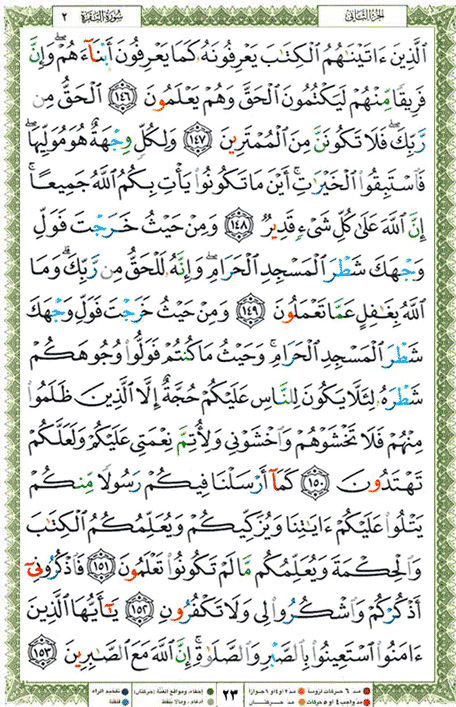 الجزء الثاني سورة البقرة ٢
الَّذِينَ ءَاتَيْنَٰهُمُ الْكِتَٰبَ يَعْرِفُونَهُ كَمَا يَعْرِفُونَ أَبْنَآءَهُمْ ۖ وَإِنَّ
فَرِيقًا مِّنْهُمْ لَيَكْتُمُونَ الْحَقَّ وَهُمْ يَعْلَمُونَ ﴿١٤٦﴾ الْحَقُّ مِن
رَّبِّكَ ۖ فَلَا تَكُونَنَّ مِنَ الْمُمْتَرِينَ ﴿١٤٧﴾ وَلِكُلٍّ وِجْهَةٌ هُوَ مُوَلِّيهَا ۖ
فَاسْتَبِقُوا الْخَيْرَٰتِ ۚ أَيْنَ مَا تَكُونُوا يَأْتِ بِكُمُ اللَّهُ جَمِيعًا ۚ
إِنَّ اللَّهَ عَلَىٰ كُلِّ شَىْءٍ قَدِيرٌ ﴿١٤٨﴾ وَمِنْ حَيْثُ خَرَجْتَ فَوَلِّ
وَجْهَكَ شَطْرَ الْمَسْجِدِ الْحَرَامِ ۖ وَإِنَّهُ لَلْحَقُّ مِن رَّبِّكَ ۗ وَمَا
اللَّهُ بِغَٰفِلٍ عَمَّا تَعْمَلُونَ ﴿١٤٩﴾ وَمِنْ حَيْثُ خَرَجْتَ فَوَلِّ وَجْهَكَ
شَطْرَ الْمَسْجِدِ الْحَرَامِ ۚ وَحَيْثُ مَا كُنتُمْ فَوَلُّوا وُجُوهَكُمْ
شَطْرَهُ لِئَلَّا يَكُونَ لِلنَّاسِ عَلَيْكُمْ حُجَّةٌ إِلَّا الَّذِينَ ظَلَمُوا
مِنْهُمْ فَلَا تَخْشَوْهُمْ وَاخْشَوْنِى وَلِأُتِمَّ نِعْمَتِى عَلَيْكُمْ وَلَعَلَّكُمْ
تَهْتَدُونَ ﴿١٥٠﴾ كَمَآ أَرْسَلْنَا فِيكُمْ رَسُولًا مِّنكُمْ
يَتْلُوا عَلَيْكُمْ ءَايَٰتِنَا وَيُزَكِّيكُمْ وَيُعَلِّمُكُمُ الْكِتَٰبَ
وَالْحِكْمَةَ وَيُعَلِّمُكُم مَّا لَمْ تَكُونُوا تَعْلَمُونَ ﴿١٥١﴾ فَاذْكُرُونِىٓ
أَذْكُرْكُمْ وَاشْكُرُوا لِى وَلَا تَكْفُرُونِ ﴿١٥٢﴾ يَٰٓأَيُّهَا الَّذِينَ
ءَامَنُوا اسْتَعِينُوا بِالصَّبْرِ وَالصَّلَوٰةِ ۚ إِنَّ اللَّهَ مَعَ الصَّٰبِرِينَ ﴿١٥٣﴾
مد ٦ حركات لزوما مد ٢ أو ٤ أو ٦ جوازا ٢٣ إخفاء، ومواقع الغنة (حركتان) تفخيم الراء
مد واجب ٤ أو ٥ حركات مد حركتان إدغام، وما لا يلفظ قلقلة